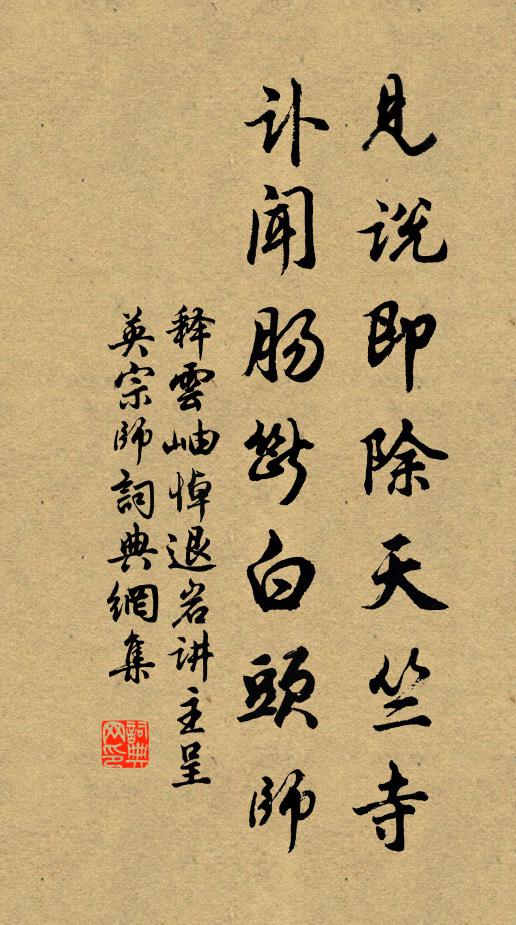 見説即除天竺寺
訃聞腸斷白頭師
释雲岫悼退岩讲主呈
英宗師詞典網集
詞典网印